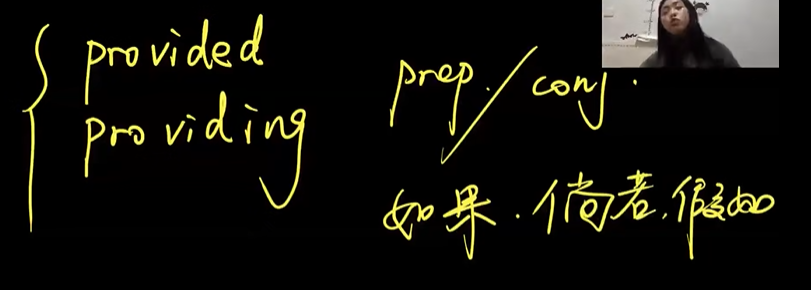 provided
providing
prep./conj.
如果.倘若,假如